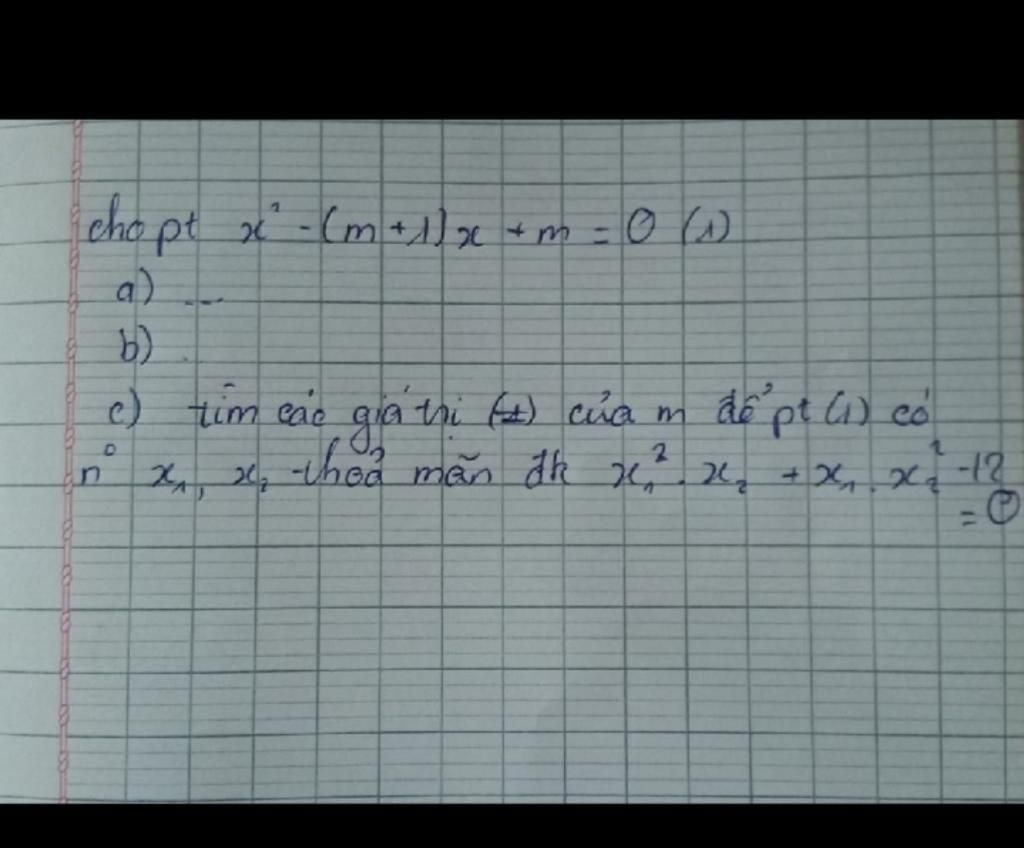 cho pt x² - (m+1)x + m = 0 (1)
a) ...
b) .
c) tìm các giá thị của m để pt (1) có
n° x₁, x₂ thoả mãn đk x₁². x₂ + x₁. x₂² -12
= 0